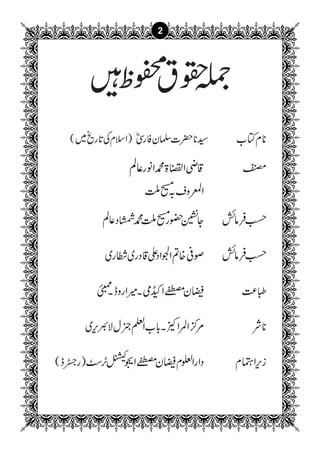 2
جملہ حقوق محفوظ ہیں
نام کتاب سیدنا حضرت سلمان فارسیؓ (اسلام کی تاریخ میں)
مصنف قاضی القضاۃ محمد انور عالم
المعروف بہ مسیح ملت
حسب فرمائش جانشین حضور مسیح ملت محمد شمشاد عالم
حسب فرمائش صوفی خاتم الجواد علی قادری شطاری
طباعت فیضان مصطفےٰ اکیڈیمی۔ میرا روڈ۔ ممبئی
ناشر مرکز المراکیز۔ باب العلم جنرل لائبریری
زیر اہتمام دارالعلوم فیضان مصطفےٰ ایجوکیشنل ٹرسٹ (رجسٹرڈ)